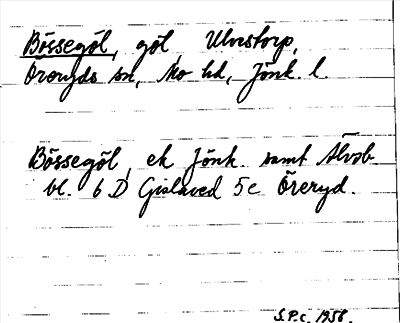 Bössegöl, göl Ulvstorp,
Öreryds sn, Mo hd, Jönk. l.
Bössegöl, ek Jönk. samt Älvsb
bl. 6 D Gislaved 5c Öreryd.
S.P.c. 1958.